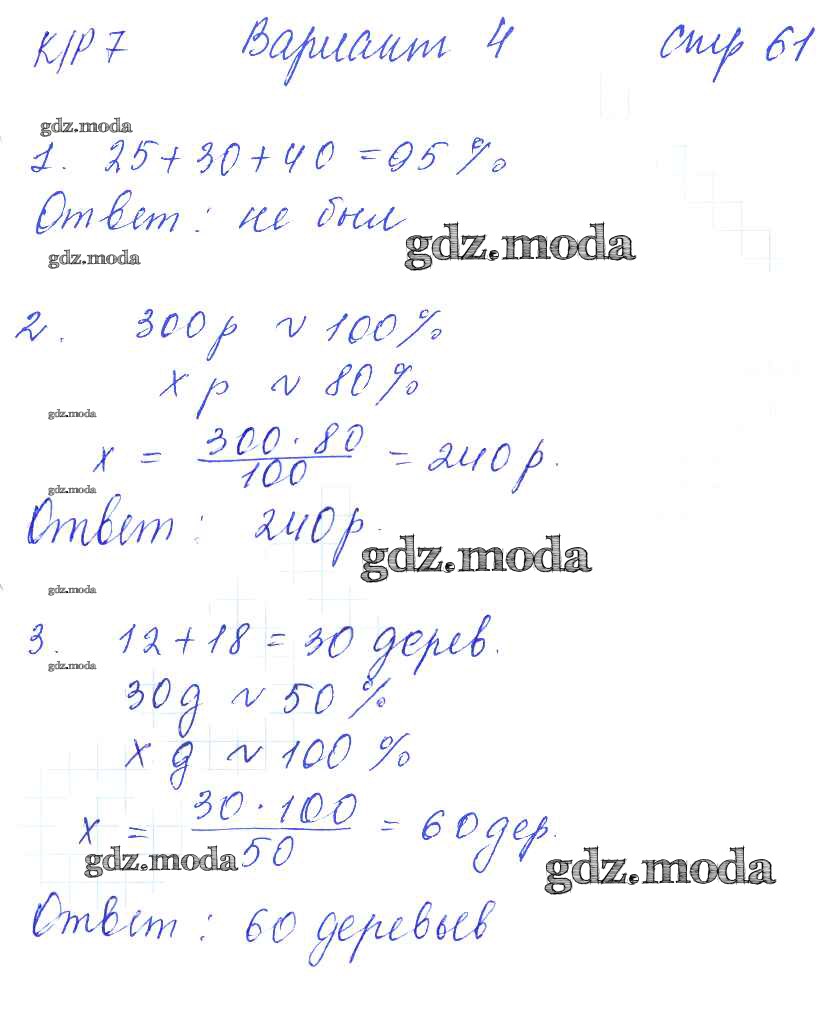 К/Р 7 Вариант 4 стр 61
gdz.moda
1. 25 + 30 + 40 = 95 %
Ответ: не был
gdz.moda
gdz.moda
2. 300 р ~ 100 %
х р ~ 80 %
gdz.moda
х = 300 · 80 / 100 = 240 р.
gdz.moda
Ответ: 240 р.
gdz.moda
gdz.moda
3. 12 + 18 = 30 дерев.
gdz.moda
30 д ~ 50 %
х д ~ 100 %
х = 30 · 100 / 50 = 60 дер.
gdz.moda
gdz.moda
Ответ: 60 деревьев